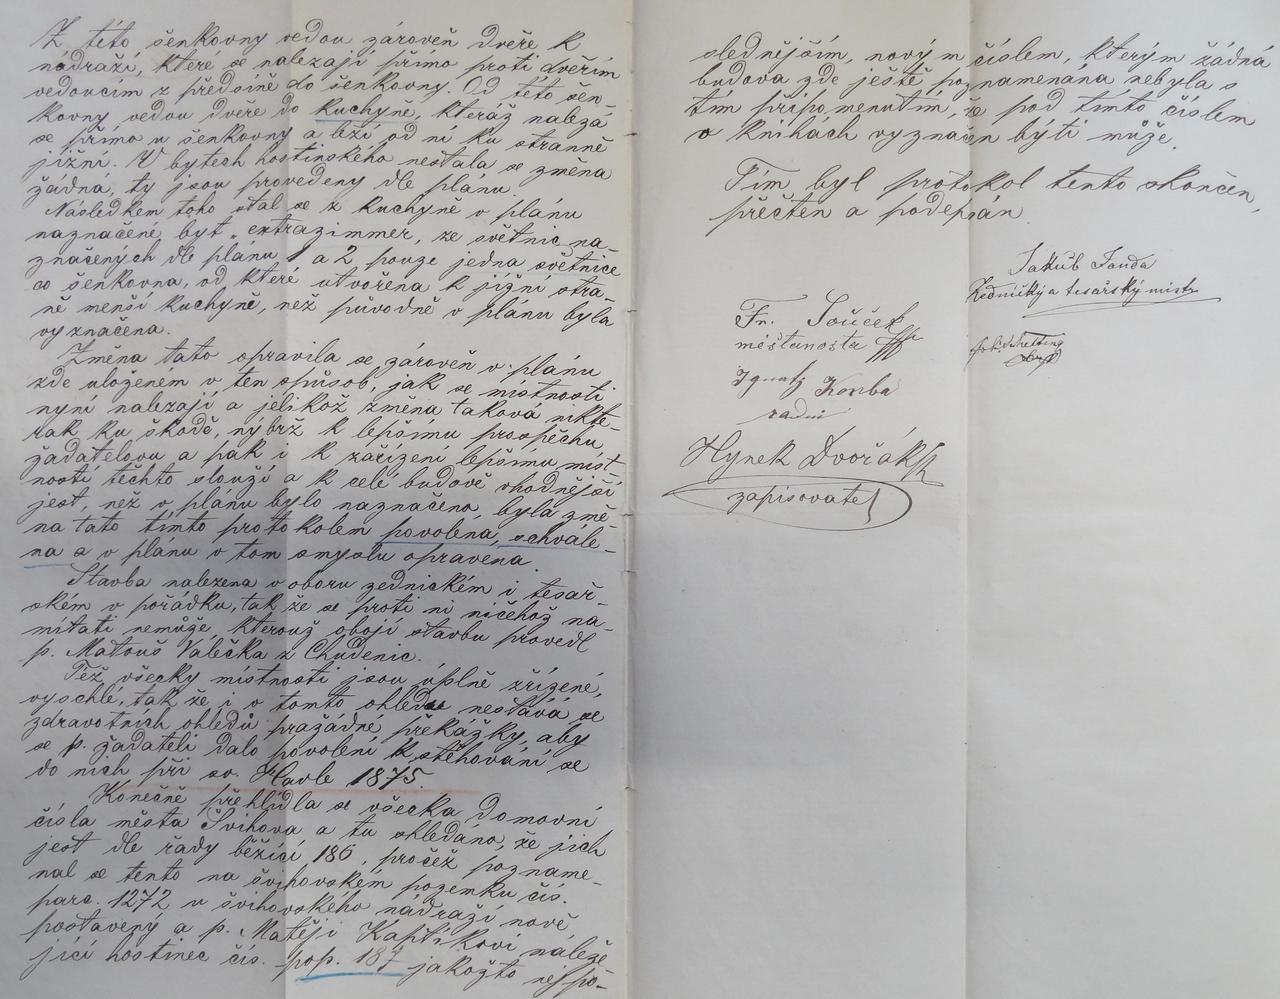 Z této šenkovny vedou zároveň dveře k
nádraží, které se nalezají přímo proti dveřím
vedoucím z předsíně do šenkovny. Od této šen-
kovny vedou dveře do kuchyně, kteráž nalezá
se přímo u šenkovny a leží od ní ku stranně
jižní. V bytech hostinského nestala se změna
žádná, ty jsou provedeny dle plánu.
Následkem toho stal se z kuchyně v plánu
naznačené byt „extrazimmer, ze světnic na-
značených dle plánu 1 a 2 pouze jedna světnice
co šenkovna, od které utvořena k jižní stra-
ně menší kuchyně, než původně v plánu byla
vyznačena.
Změna tato opravila se zároveň v plánu
zde uloženém v ten spůsob, jak se místnosti
nyní nalezají a jelikož změna taková nikte-
rak ku škodě, nýbrž k lepšímu prospěchu
žadatelovu a pak i k zařízení lepšímu míst-
ností těchto slouží a k celé budově vhodnější
jest, než v plánu bylo naznačeno, byla změ-
na tato tímto protokolem povolena, schvále-
na a v plánu v tom smyslu opravena.
Stavba nalezena v oboru zednickém i tesař-
ském v pořádku, tak že se proti ní ničehož na-
mítati nemůže, kterouž obojí stavbu provedl
p. Matouš Valečka z Chudenic.
Též všecky místnosti jsou úplně zřízené,
vyschlé, tak že i v tomto ohledu nestává se
zdravotních ohledů pražádné překážky, aby
se p. žadateli dalo povolení k stěhování se
do nich při sv. Havle 1875.
Konečně přehlídla se všecka domovní
čísla města Švihova a tu shledáno, že jich
jest dle řady běžící 186, pročež pozname-
nal se tento na švihovském pozemku čís.
parc. 1272 u švihovského nádraží nově
postavený a p. Matěji Kaptíkovi náleže
jící hostinec čís. pop. 187 jakožto nejpo-
slednějším, novým číslem, kterým žádná
budova zde ještě poznamenána nebyla s
tím připomenutím, že pod tímto číslem
v knihách vyznačen býti může.
Tím byl protokol tento skončen,
přečten a podepsán.
Jakub Janda
Zednický a tesařský mistr
Fr. Souček
měšťanosta
Ignatz Korba
radní
Hynek Dvořák
zapisovatel